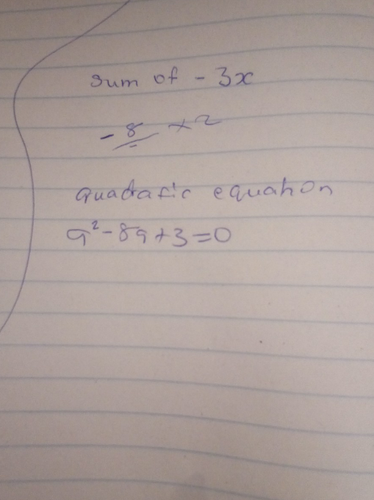 sum of - 3x
- 8 x 2
quadratic equation
a² - 8a + 3 = 0